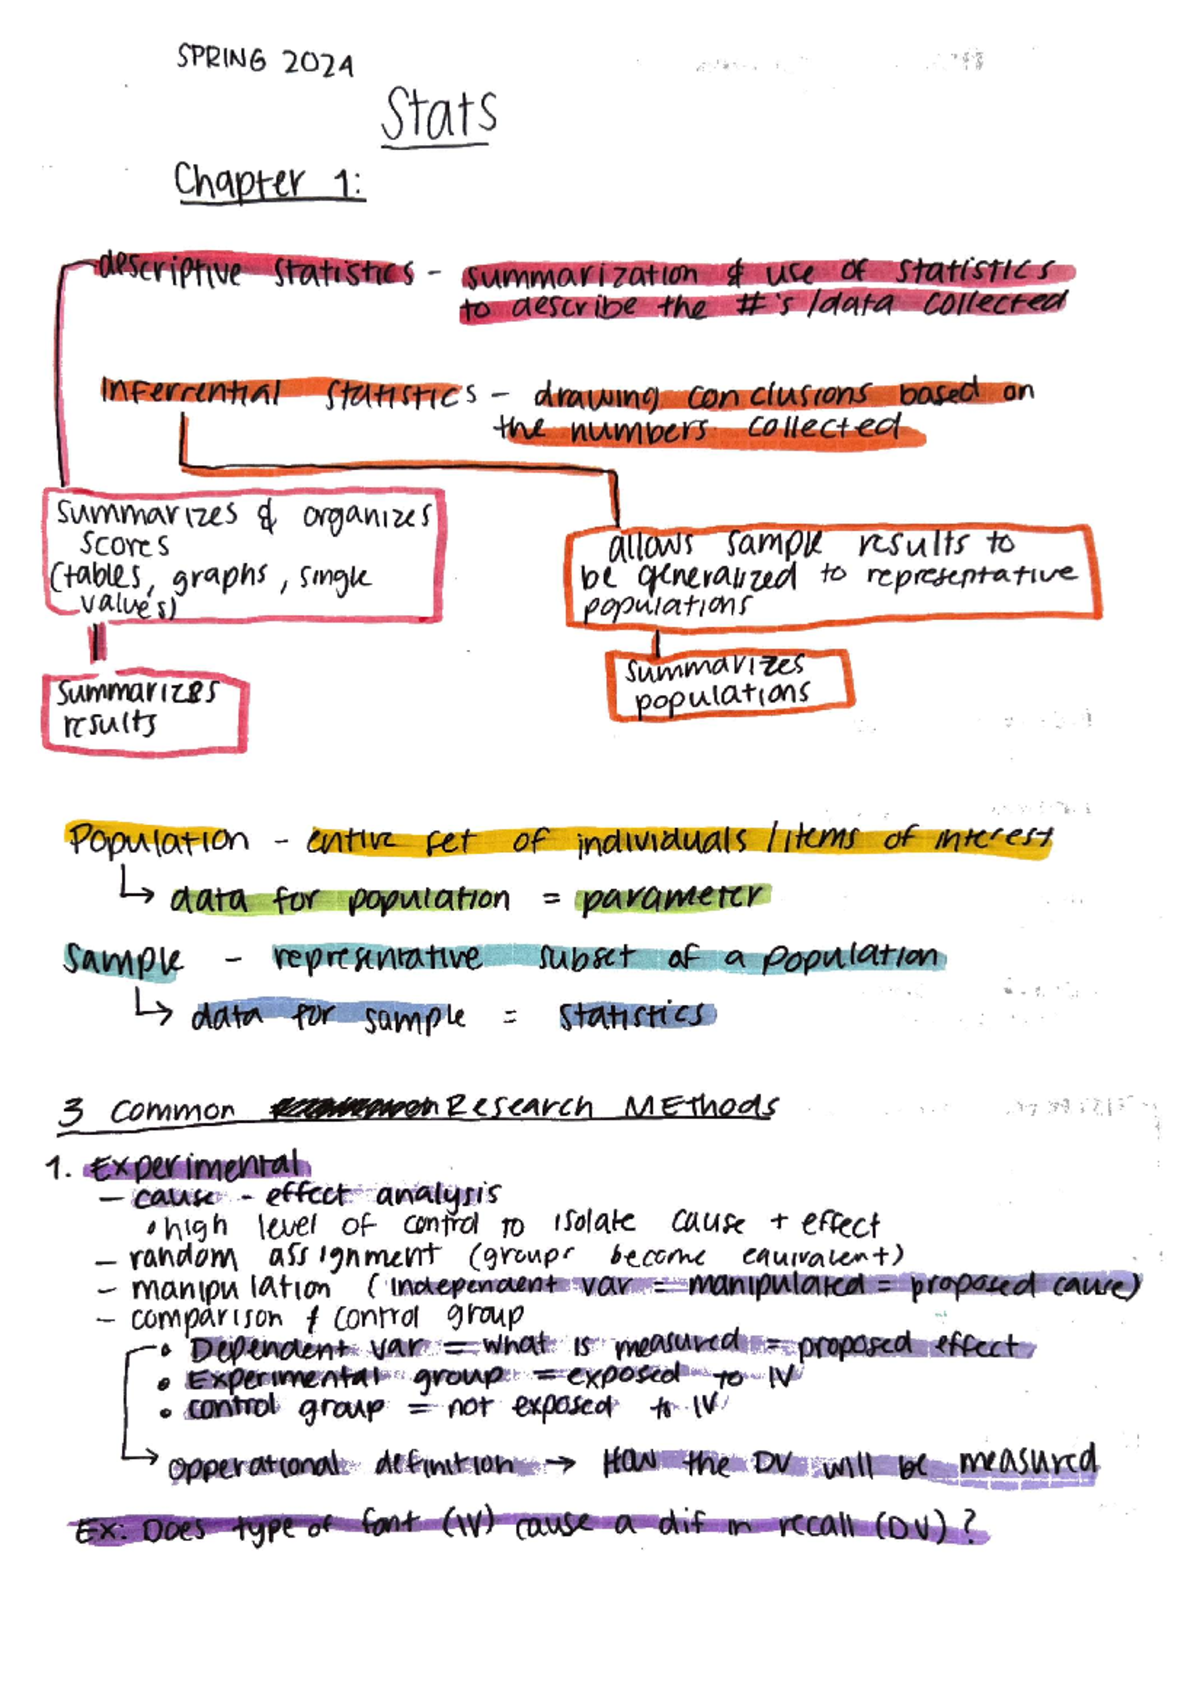 SPRING 2024
Stats
Chapter 1:
descriptive statistics - summarization & use of statistics
to describe the #'s/data collected
Inferrential statistics - drawing conclusions based on
the numbers collected
summarizes & organizes
scores
(tables, graphs, single
values)
allows sample results to
be generalized to representative
populations
summarizes
populations
summarizes
results
Population - entire set of individuals/items of interest
↳ data for population = parameter
Sample - representative subset of a population
↳ data for sample = statistics
3 common Research Methods
1. Experimental
- cause - effect analysis
• high level of control to isolate cause + effect
- random assignment (groups become equivalent)
- manipulation (independent var = manipulated = proposed cause)
- comparison & control group
• Dependent var = what is measured = proposed effect
• Experimental group = exposed to IV
• control group = not exposed to IV
→ opperational definition → How the DV will be measured
Ex: Does type of font (IV) cause a dif in recall (DV)?